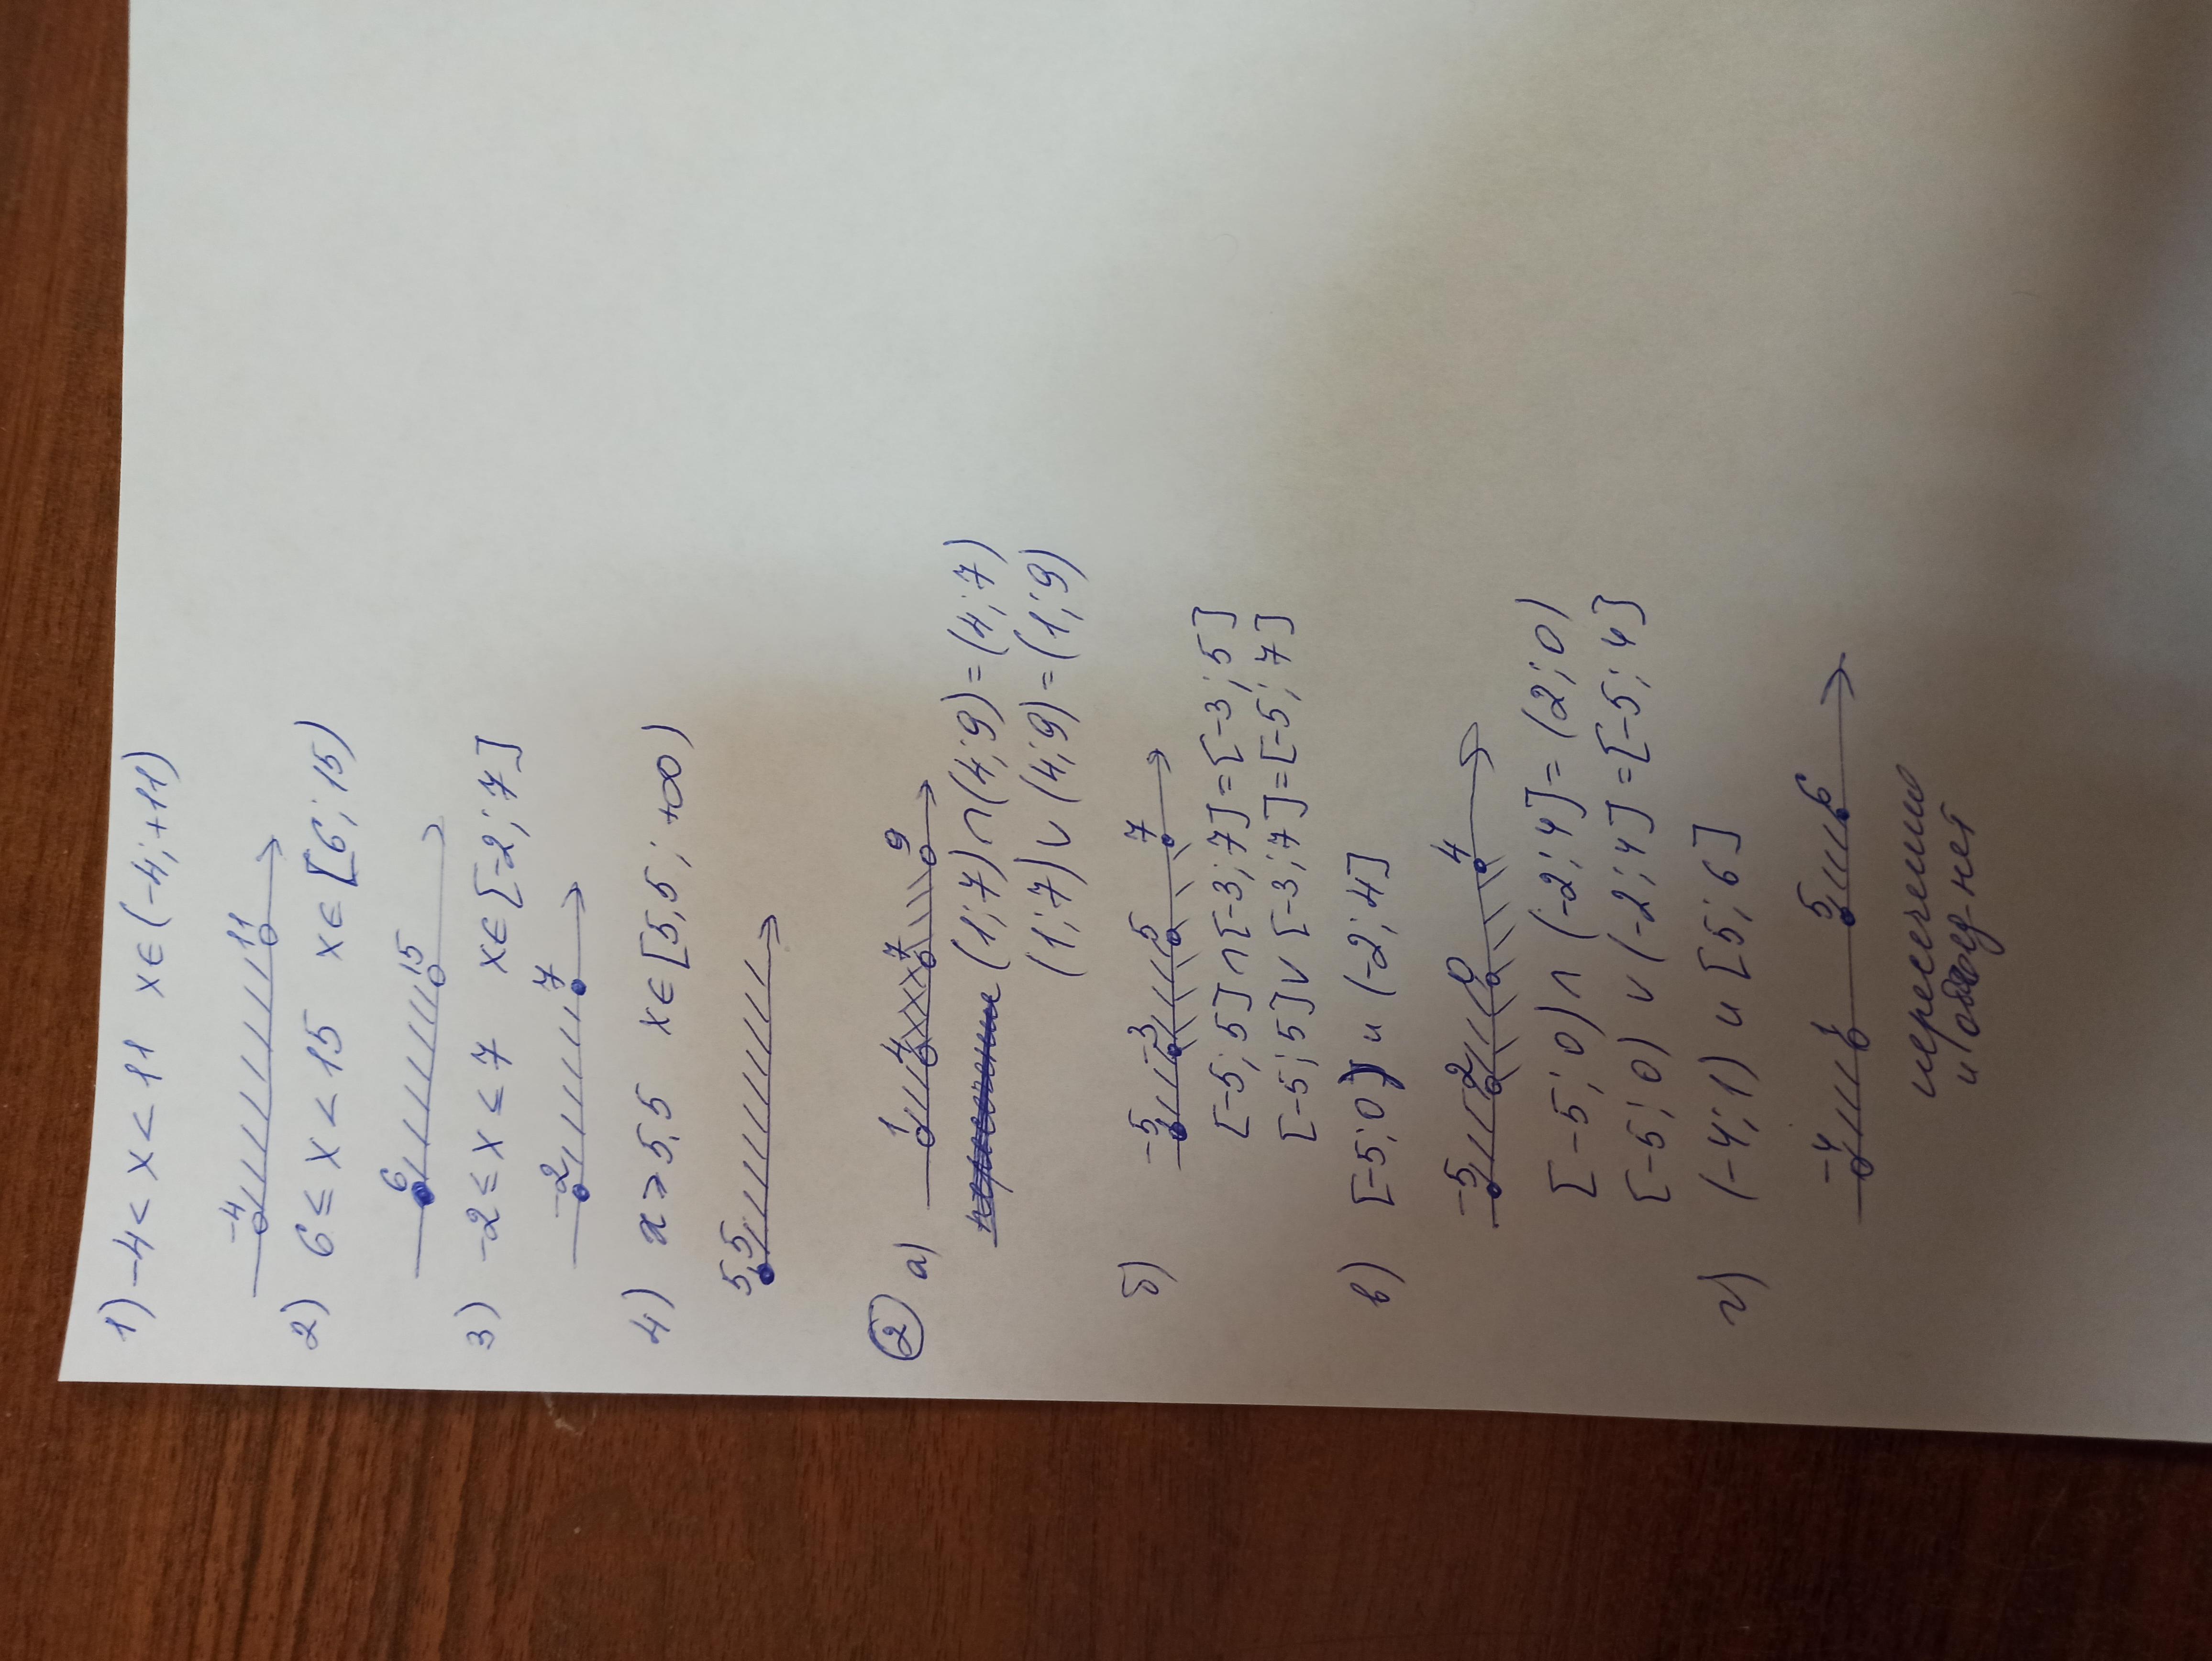 1) -4 < x < 11 x ∈ (-4; +11)
-4 11
2) 6 ≤ x < 15 x ∈ [6; 15)
6 15
3) -2 ≤ x ≤ 7 x ∈ [-2; 7]
-2 7
4) x ≥ 5,5 x ∈ [5,5; +∞)
5,5
② а) 1 4 7 9
(1; 7) ∩ (4; 9) = (4; 7)
(1; 7) ∪ (4; 9) = (1; 9)
б) -5 -3 5 7
[-5; 5] ∩ [-3; 7] = [-3; 5]
[-5; 5] ∪ [-3; 7] = [-5; 7]
в) [-5; 0) и (-2; 4]
-5 -2 0 4
[-5; 0) ∩ (-2; 4] = (2; 0)
[-5; 0) ∪ (-2; 4] = [-5; 4]
г) (-4; 1) и [5; 6]
-4 1 5 6
пересечения
и нет